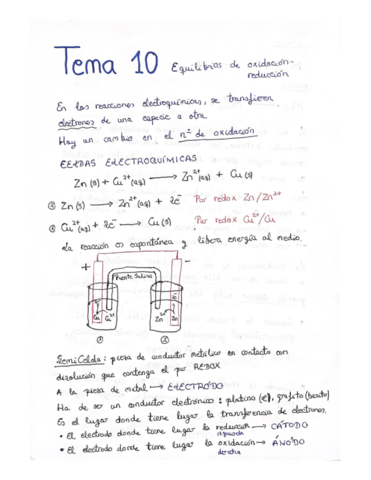 Tema 10 Equilibrios de oxidación-
reducción
En las reacciones electroquímicas, se transfieren
electrones de una especie a otra.
Hay un cambio en el nº de oxidación
CELDAS ELECTROQUÍMICAS
Zn (s) + Cu²⁺(aq) ⟶ Zn²⁺(aq) + Cu (s)
① Zn (s) ⟶ Zn²⁺(aq) + 2e⁻ Par redox Zn/Zn²⁺
② Cu²⁺(aq) + 2e⁻ ⟶ Cu (s) Par redox Cu²⁺/Cu
La reacción es espontánea y libera energía al medio.
+ -
Puente Salino
Cu Cu²⁺ Zn²⁺ Zn
SemiCelda: pieza de conductor metálico en contacto con
disolución que contenga el par REDOX
A la pieza de metal → ELECTRODO
Ha de ser un conductor electrónico: platino (c), grafito (barito)
Es el lugar donde tiene lugar la transferencia de electrones.
• El electrodo donde tiene lugar la reducción → CÁTODO
izquierda
• El electrodo donde tiene lugar la oxidación → ÁNODO
derecha